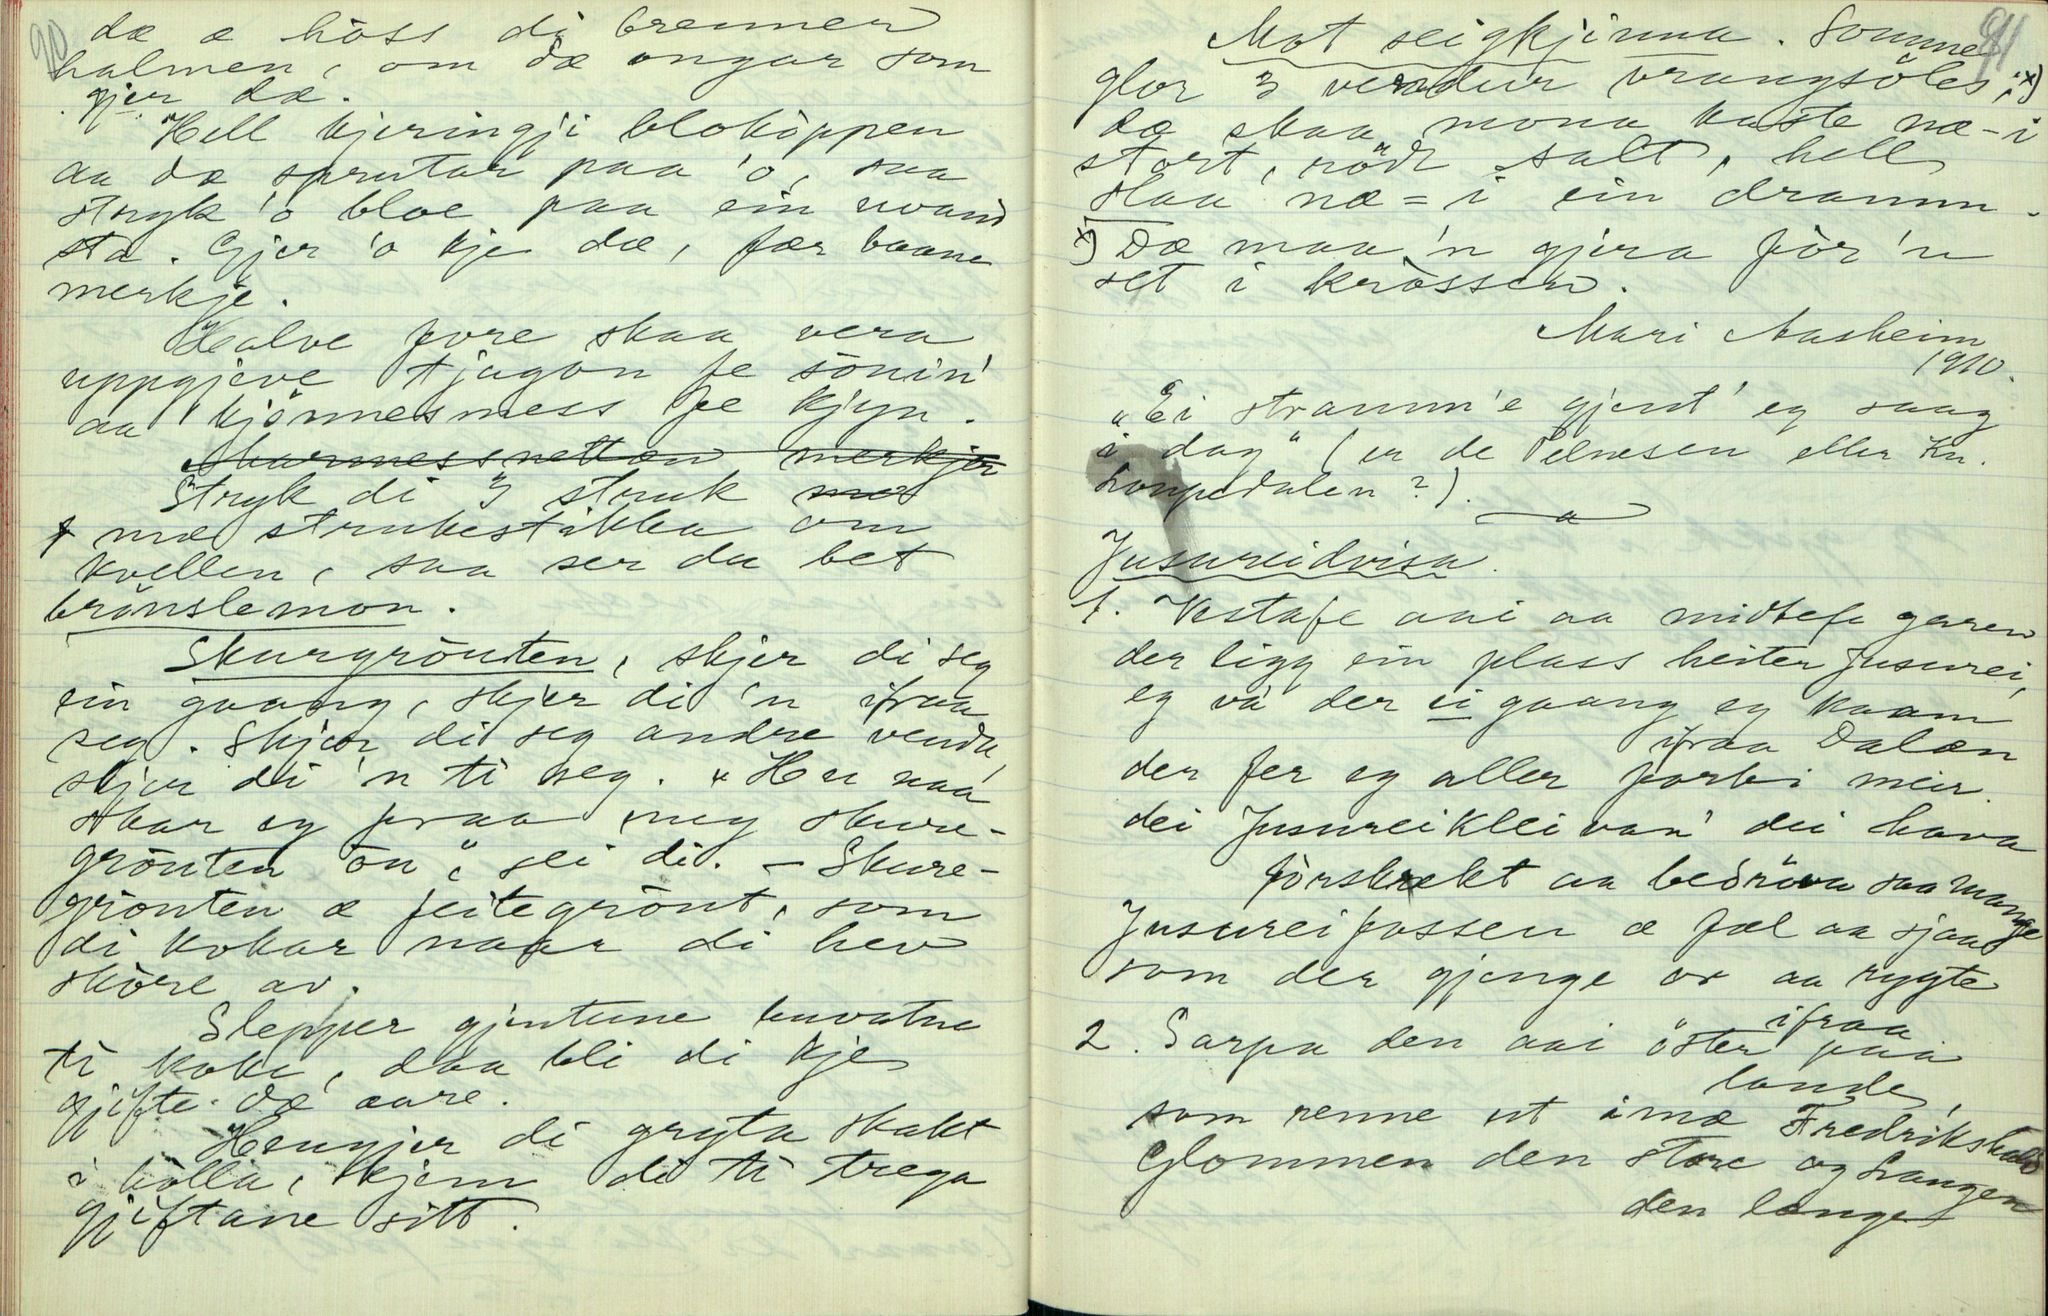 90
dæ æ höss di brenner
halmen, om dæ ongar som
gjer dæ.
Hell kjeringji bloköppen
aa dæ sprutar paa 'o, saa
stryk 'o bloe paa ein uvand
sta. Gjer 'o kje dæ, fær baane
merkje.
Halve fore skaa vera
uppgjeve tjagon fe sönin'
aa kjönnesmess fe kjyn.
Marmessnetton merkjer
Stryk di 3 struk mæ
mæ strukestikka om
kvellen, saa ser du bet
brönslemon.
Skurgrönten, skjer di seg
ein gaang, skjer di 'n ifraa
seg. Skjær di seg andre vendu,
skjer di 'n ti seg. "Hu naa
skar eg fraa meg skure-
grönten ön", sei di. – Skure-
grönten æ feitegrönt, som
di kokar naar di hev
sköre av.
Slepper gjentune huvatne
ti koke, daa bli di kje
gjifte dæ aare.
Hengjer di gryta skakt
i hölla, kjem di ti trega
gjiftane sitt.
91
Mot seigkjinna. Somme
glor 3 vendur vrangsöles; x)
dæ skaa mona kaste næ-i
stort, rödt salt, hell
slaa næ-i ein dramm.
x) Dæ maa 'n gjera för 'n
set i krossen.
Mari Aasheim
1910.
"Ei stramm'e gjent' eg saag
i dag" (er de Telnesen eller Kn.
Loupedalen?).
Jusureidvisa.
1. Vestafe aai aa midtefe garen
der ligg ein plass heiter Jusurei,
eg va der ei gaang eg kaam
ifraa Dalæn
der fer eg aller forbi meir.
dei Jusureikleivan' dei hava
förskrekt aa bedröva saa mange
Jusureifossen æ fæl aa sjaa
som der gjenge or aa rygte
2. Sarpa den aai öster ifraa paa
lande,
som renne ut imæ Fredrikshald
Glommen den store og Laagen
den lange